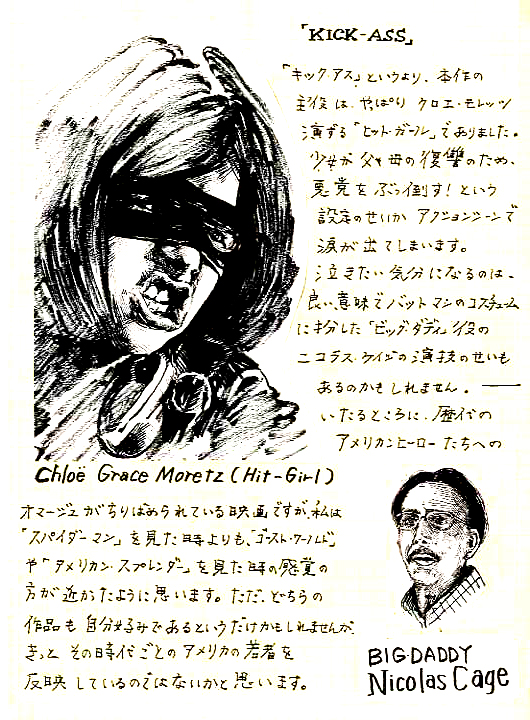 「KICK-ASS」
「キック・アス」というより、本作の
主役は、やっぱり クロエ・モレッツ
演ずる「ヒット・ガール」でありました。
少女が 父や母の復讐のため、
悪党を ぶっ倒す！という
設定のせいか アクションシーンで
涙が出てしまいます。
泣きたい気分になるのは、
良い意味でバットマンのコスチューム
に扮した「ビッグ・ダディ」役の
ニコラス・ケイジの演技のせいも
あるのかもしれません。——
いたるところに、歴代の
アメリカンヒーローたちへの
Chloë Grace Moretz (Hit-Girl)
オマージュがちりばめられている映画ですが、私は
「スパイダーマン」を見た時よりも、「ゴースト・ワールド」
や「アメリカン・スプレンダー」を見た時の感覚の
方が近かったように思います。ただ、どちらの
作品も自分好みであるというだけかもしれませんが、
きっと その時代ごとのアメリカの若者を
反映しているのではないかと思います。
BIG-DADDY
Nicolas Cage